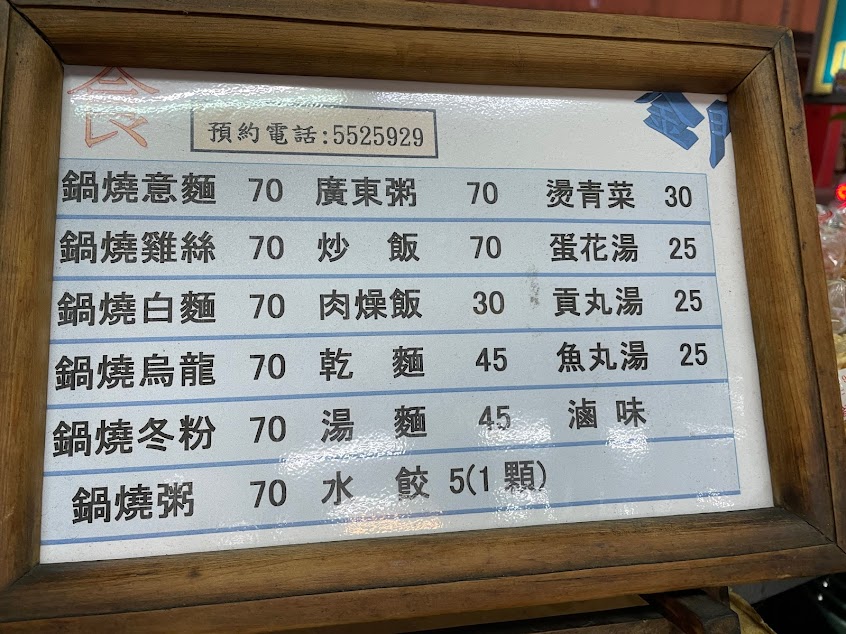 食
預約電話:5525929
金甲
鍋燒意麵 70 廣東粥 70 燙青菜 30
鍋燒雞絲 70 炒飯 70 蛋花湯 25
鍋燒白麵 70 肉燥飯 30 貢丸湯 25
鍋燒烏龍 70 乾麵 45 魚丸湯 25
鍋燒冬粉 70 湯麵 45 滷味
鍋燒粥 70 水餃 5(1顆)